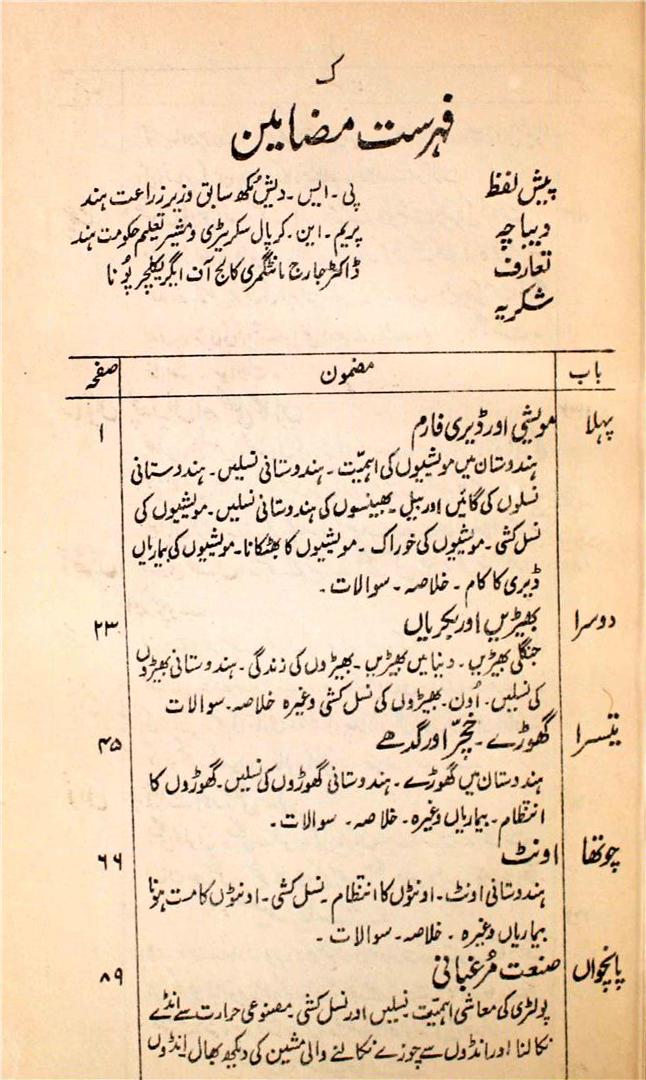 ک
فہرست مضامین
پیش لفظ پی۔ ایس۔ دیش مُکھ سابق وزیر زراعت ہند
دیباچہ پریم۔ این۔ کرپال سکریٹری و مشیر تعلیم حکومت ہند
تعارف ڈاکٹر جارج مانٹگمری کالج آف ایگریکلچر پُونا
شکریہ
باب مضمون صفحہ
پہلا مویشی اور ڈیری فارم ۱
ہندوستان میں مویشیوں کی اہمیّت۔ ہندوستانی نسلیں۔ ہندوستانی
نسلوں کی گائیں اور بیل۔ بھینسوں کی ہندوستانی نسلیں۔ مویشیوں کی
نسل کشی۔ مویشیوں کی خوراک۔ مویشیوں کا بھٹکانا۔ مویشیوں کی بیماریاں
ڈیری کا کام۔ خلاصہ۔ سوالات۔
دوسرا بھیڑیں اور بکریاں ۲۳
جنگلی بھیڑیں۔ دنیا میں بھیڑیں۔ بھیڑوں کی زندگی۔ ہندوستانی بھیڑوں
کی نسلیں۔ اُون۔ بھیڑوں کی نسل کشی وغیرہ خلاصہ۔ سوالات
تیسرا گھوڑے۔ خچّر اور گدھے ۴۵
ہندوستان میں گھوڑے۔ ہندوستانی گھوڑوں کی نسلیں۔ گھوڑوں کا
انتظام۔ بیماریاں وغیرہ۔ خلاصہ۔ سوالات۔
چوتھا اونٹ ۶۶
ہندوستانی اونٹ۔ اونٹوں کا انتظام۔ نسل کشی۔ اونٹوں کا مست ہونا
بیماریاں وغیرہ۔ خلاصہ۔ سوالات۔
پانچواں صنعت مُرغبانی ۸۹
پولٹری کی معاشی اہمیّت نسلیں اور نسل کشی۔ مصنوعی حرارت سے انڈے
نکالنا اور انڈوں سے چوزے نکالنے والی مشین کی دیکھ بھال انڈوں